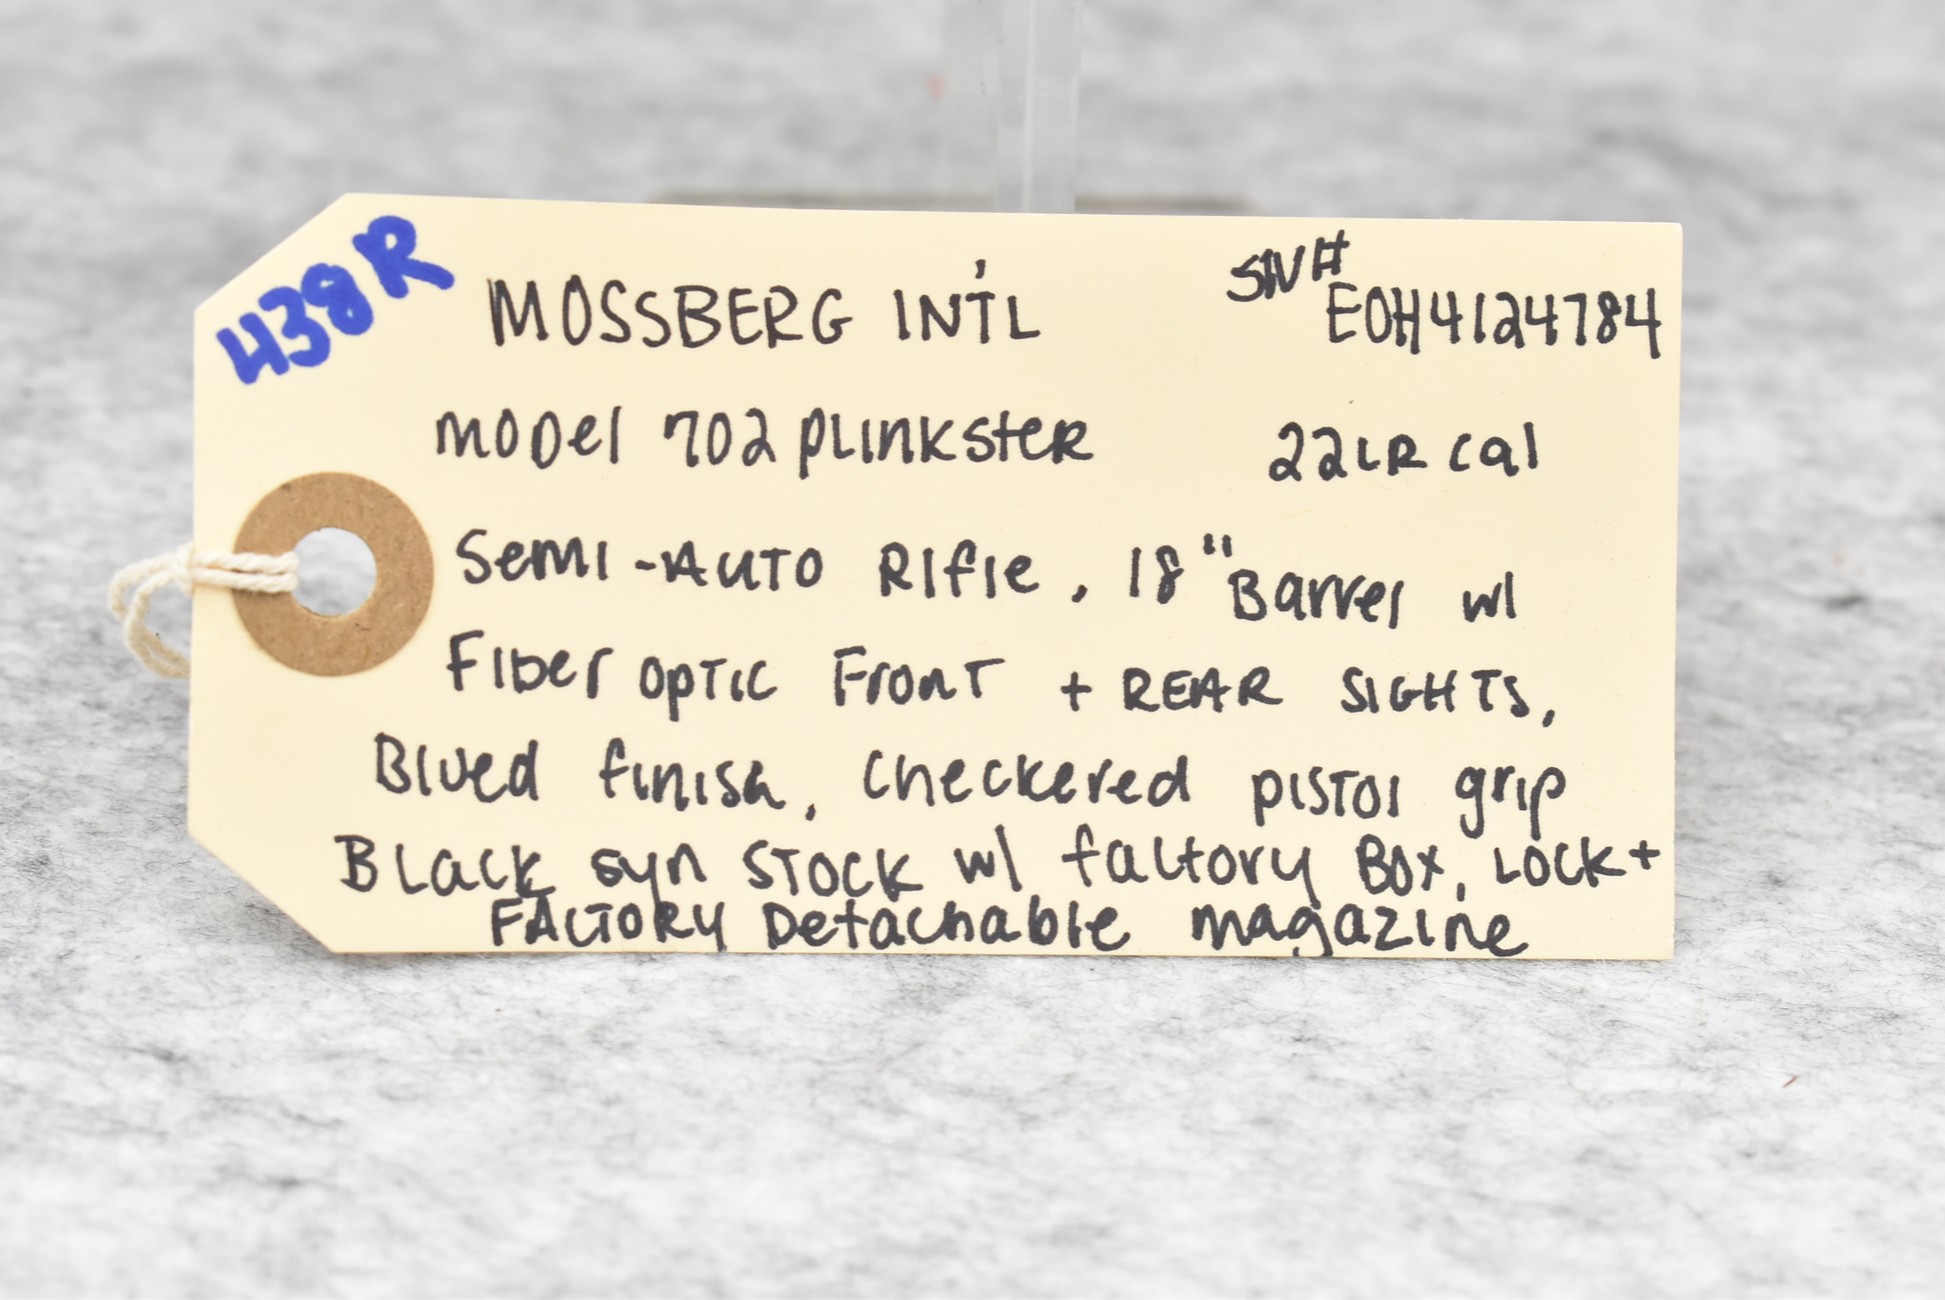 438R
MOSSBERG INT'L
SN# EOH4124784
MODEl 702 PLINKSTER
22LR Cal
Semi-AUTO Rifle, 18" Barrel w/
Fiber OPTIC Front + REAR SIGHTS,
Blued finish, Checkered pistol grip
Black syn STOCK w/ factory Box, LOCK +
FACTORY Detachable magazine